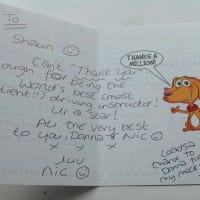 To
Shaun ☺
Can't "Thank you"
ough for being the
World's best (most
tient!!) driving instructor!
Ur a star!
All the very best
to you, Donna & Nic ☺
x x x
luv
nic ☺
THANKS A
MILLION!
Loadsa
thanx to
Donna for
my mock